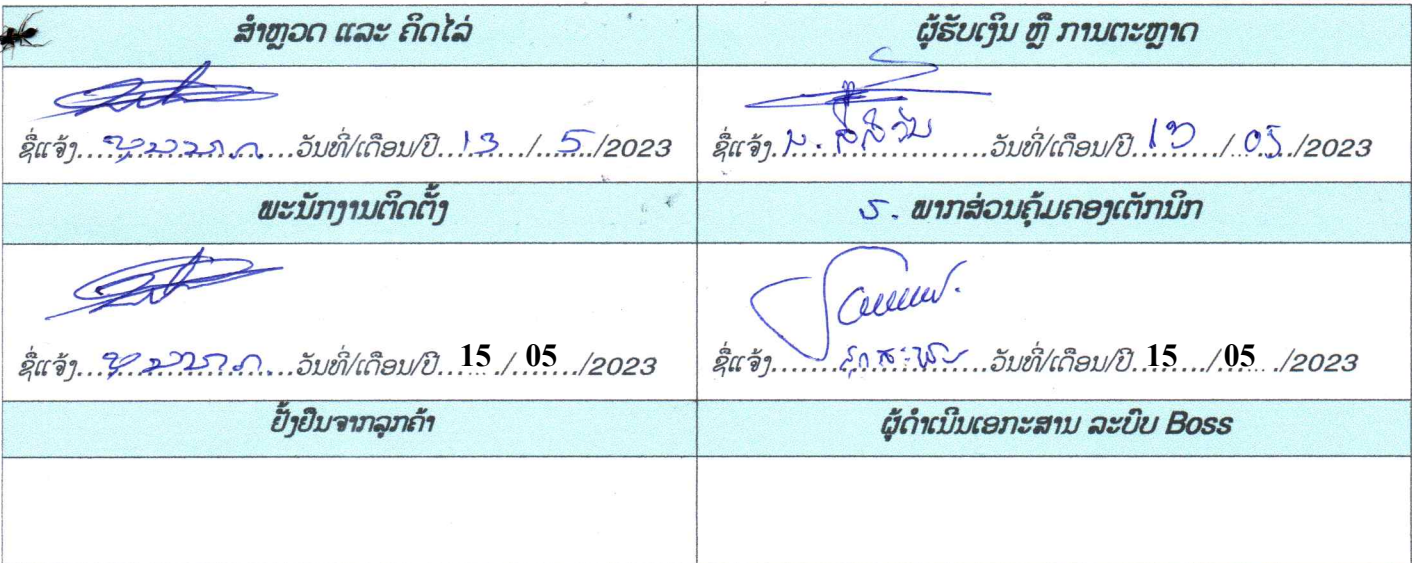 ສຳຫຼວດ ແລະ ຄິດໄລ່
ຜູ້ຮັບເງິນ ຫຼື ການຕະຫຼາດ
ຊື່ແຈ້ງ.....................ວັນທີ່/ເດືອນ/ປີ...13..../...5.../2023
ຊື່ແຈ້ງ.....................ວັນທີ່/ເດືອນ/ປີ...13..../...05.../2023
ພະນັກງານຕິດຕັ້ງ
ຮ. ພາກສ່ວນຄຸ້ມຄອງເຕັກນິກ
ຊື່ແຈ້ງ.....................ວັນທີ່/ເດືອນ/ປີ...15.../...05.../2023
ຊື່ແຈ້ງ.....................ວັນທີ່/ເດືອນ/ປີ...15.../...05.../2023
ຢັ້ງຢືນຈາກລູກຄ້າ
ຜູ້ດຳເນີນເອກະສານ ລະບົບ Boss